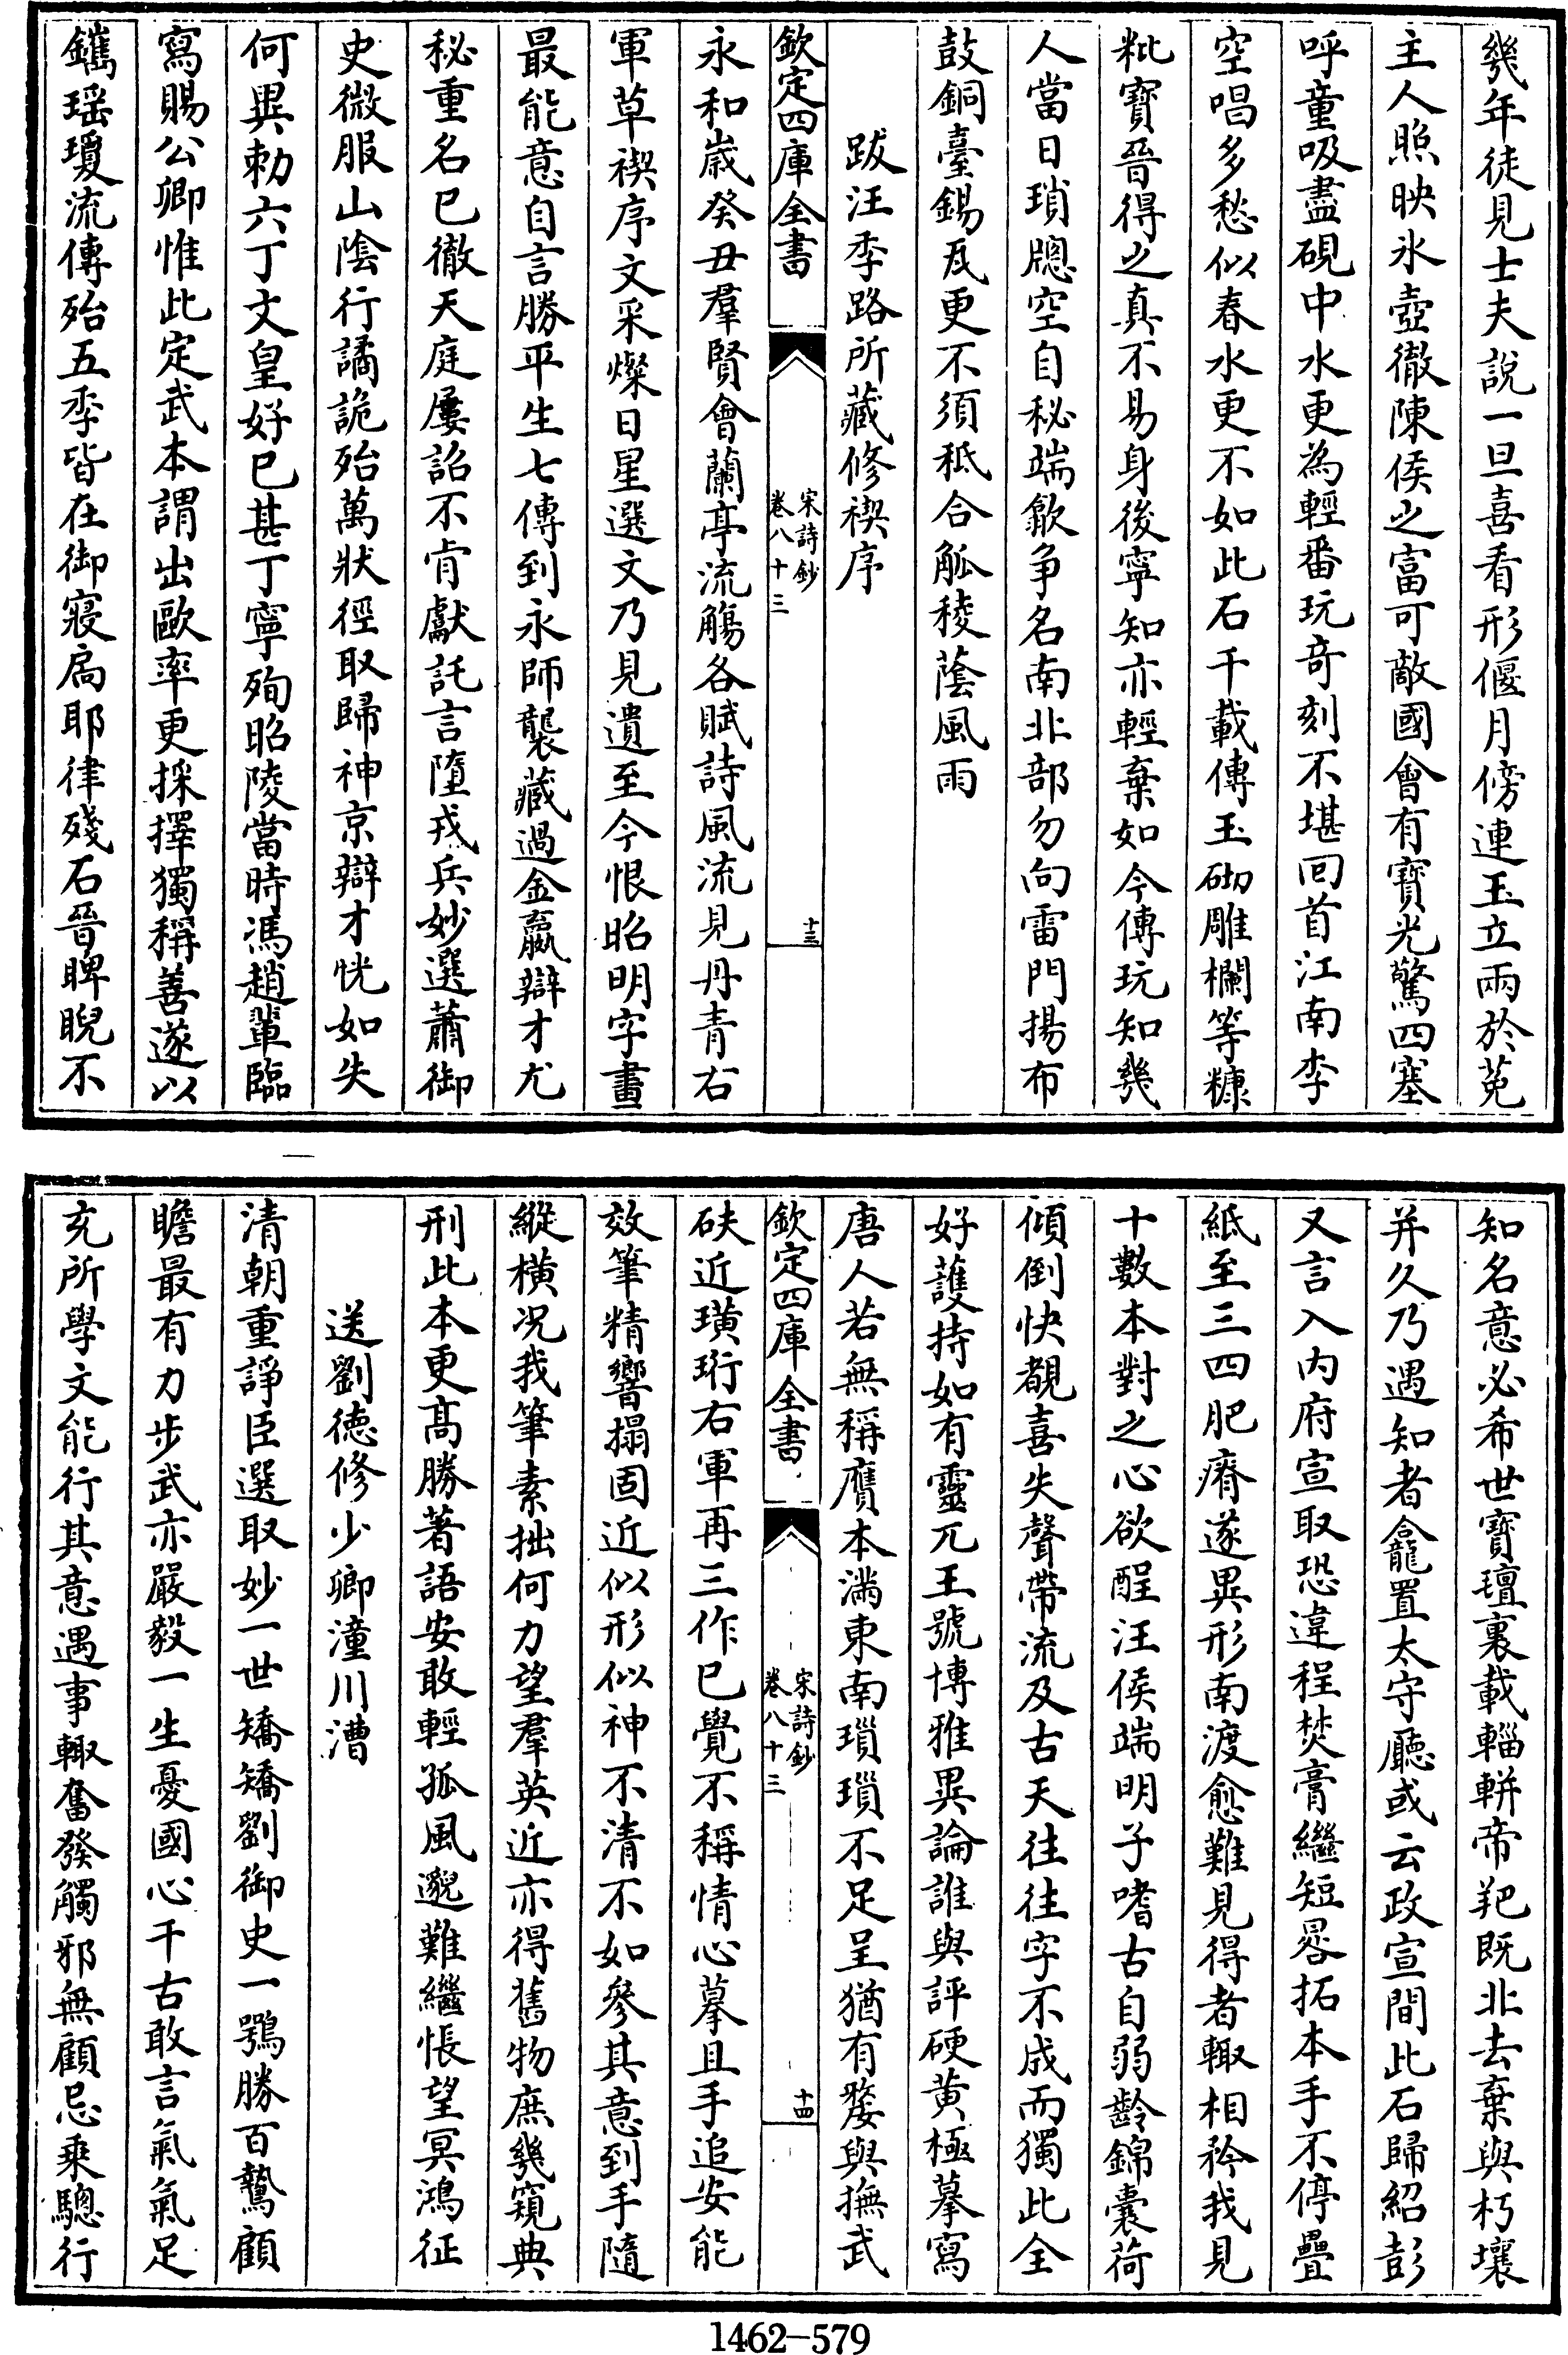 幾年徒見士夫說一旦喜看形偃月傍連玉立兩於菟
主人照映氷壺徹陳侯之富可敵國會有寳光驚四塞
呼童吸盡硯中水更為輕番玩竒刻不堪回首江南李
空唱多愁似春水更不如此石千載傳玉砌雕欄等糠
粃寳晉得之真不易身後寧知亦輕棄如今傳玩知幾
人當日瑣牕空自秘端歙争名南北部勿向雷門揚布
鼓銅臺錫瓦更不須秖合觚稜蔭風雨
跋汪季路所藏修禊序
欽定四庫全書
宋詩鈔
卷八十三
十三
永和歲癸丑羣賢會蘭亭流觴各賦詩風流見丹青右
軍草禊序文采燦日星選文乃見遺至今恨昭明字畫
最能意自言勝平生七傳到永師襲藏過金籯辯才尤
秘重名已徹天庭屢詔不肯獻託言墮戎兵妙選蕭御
史微服山陰行譎詭殆萬狀徑取歸神京辯才恍如失
何異勅六丁文皇好已甚丁寧殉昭陵當時馮趙輩臨
寫賜公卿惟此定武本謂出歐率更採擇獨稱善遂以
鐫瑶瓊流傳殆五季皆在御寢扃耶律殘石晉睥睨不
知名意必希世寳氊裏載輜軿帝羓既北去棄與朽壤
并久乃遇知者龕置太守廳或云政宣間此石歸紹彭
又言入内府宣取恐違程焚膏繼短晷拓本手不停疊
紙至三四肥瘠遂異形南渡愈難見得者輙相矜我見
十數本對之心欲酲汪侯端明子嗜古自弱齡錦囊荷
傾倒快覩喜失聲帶流及古天往往字不成而獨此全
好護持如有靈兀王號博雅異論誰與評硬黄極摹寫
唐人若無稱贋本滿東南瑣瑣不足呈猶有婺與撫武
欽定四庫全書
宋詩鈔
卷八十三
十四
砆近璜珩右軍再三作已覺不稱情心摹且手追安能
效筆精響搨固近似形似神不清不如參其意到手隨
縱横况我筆素拙何力望羣英近亦得舊物庶幾窺典
刑此本更髙勝著語安敢輕孤風邈難繼悵望冥鴻征
送劉德修少卿潼川漕
清朝重諍臣選取妙一世矯矯劉御史一鶚勝百鷙顧
瞻最有力步武亦嚴毅一生憂國心千古敢言氣氣足
充所學文能行其意遇事輙奮發觸邪無顧忌乘驄行
1462-579